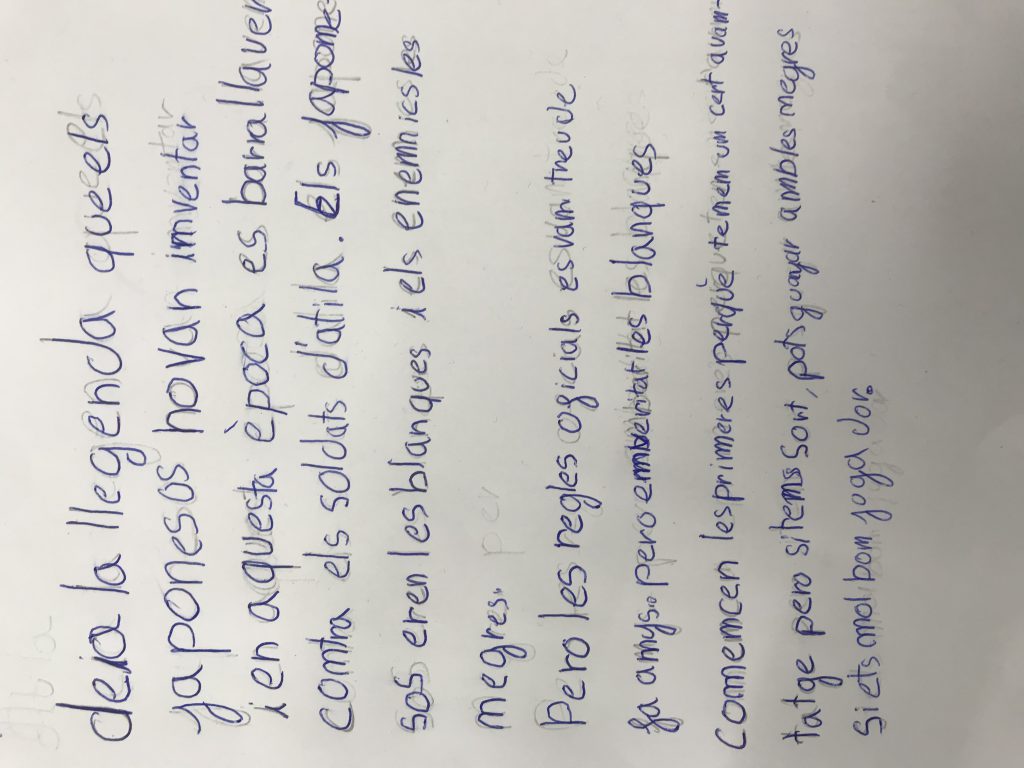 deia la llegenda queels
japonesos hovan inventar
i en aquesta època es barallaven
contra els soldats d'atila. Els japone
sos eren les blanques i els enemicsles
negres.
Pero les regles ogicials esvantreude
fa anys. pero enrealitat les blanques
Comencen lesprimeres perquè tenen un cert avan-
tatge pero si tens sort, pots guayar ambles negres
si ets mol bon jogador.